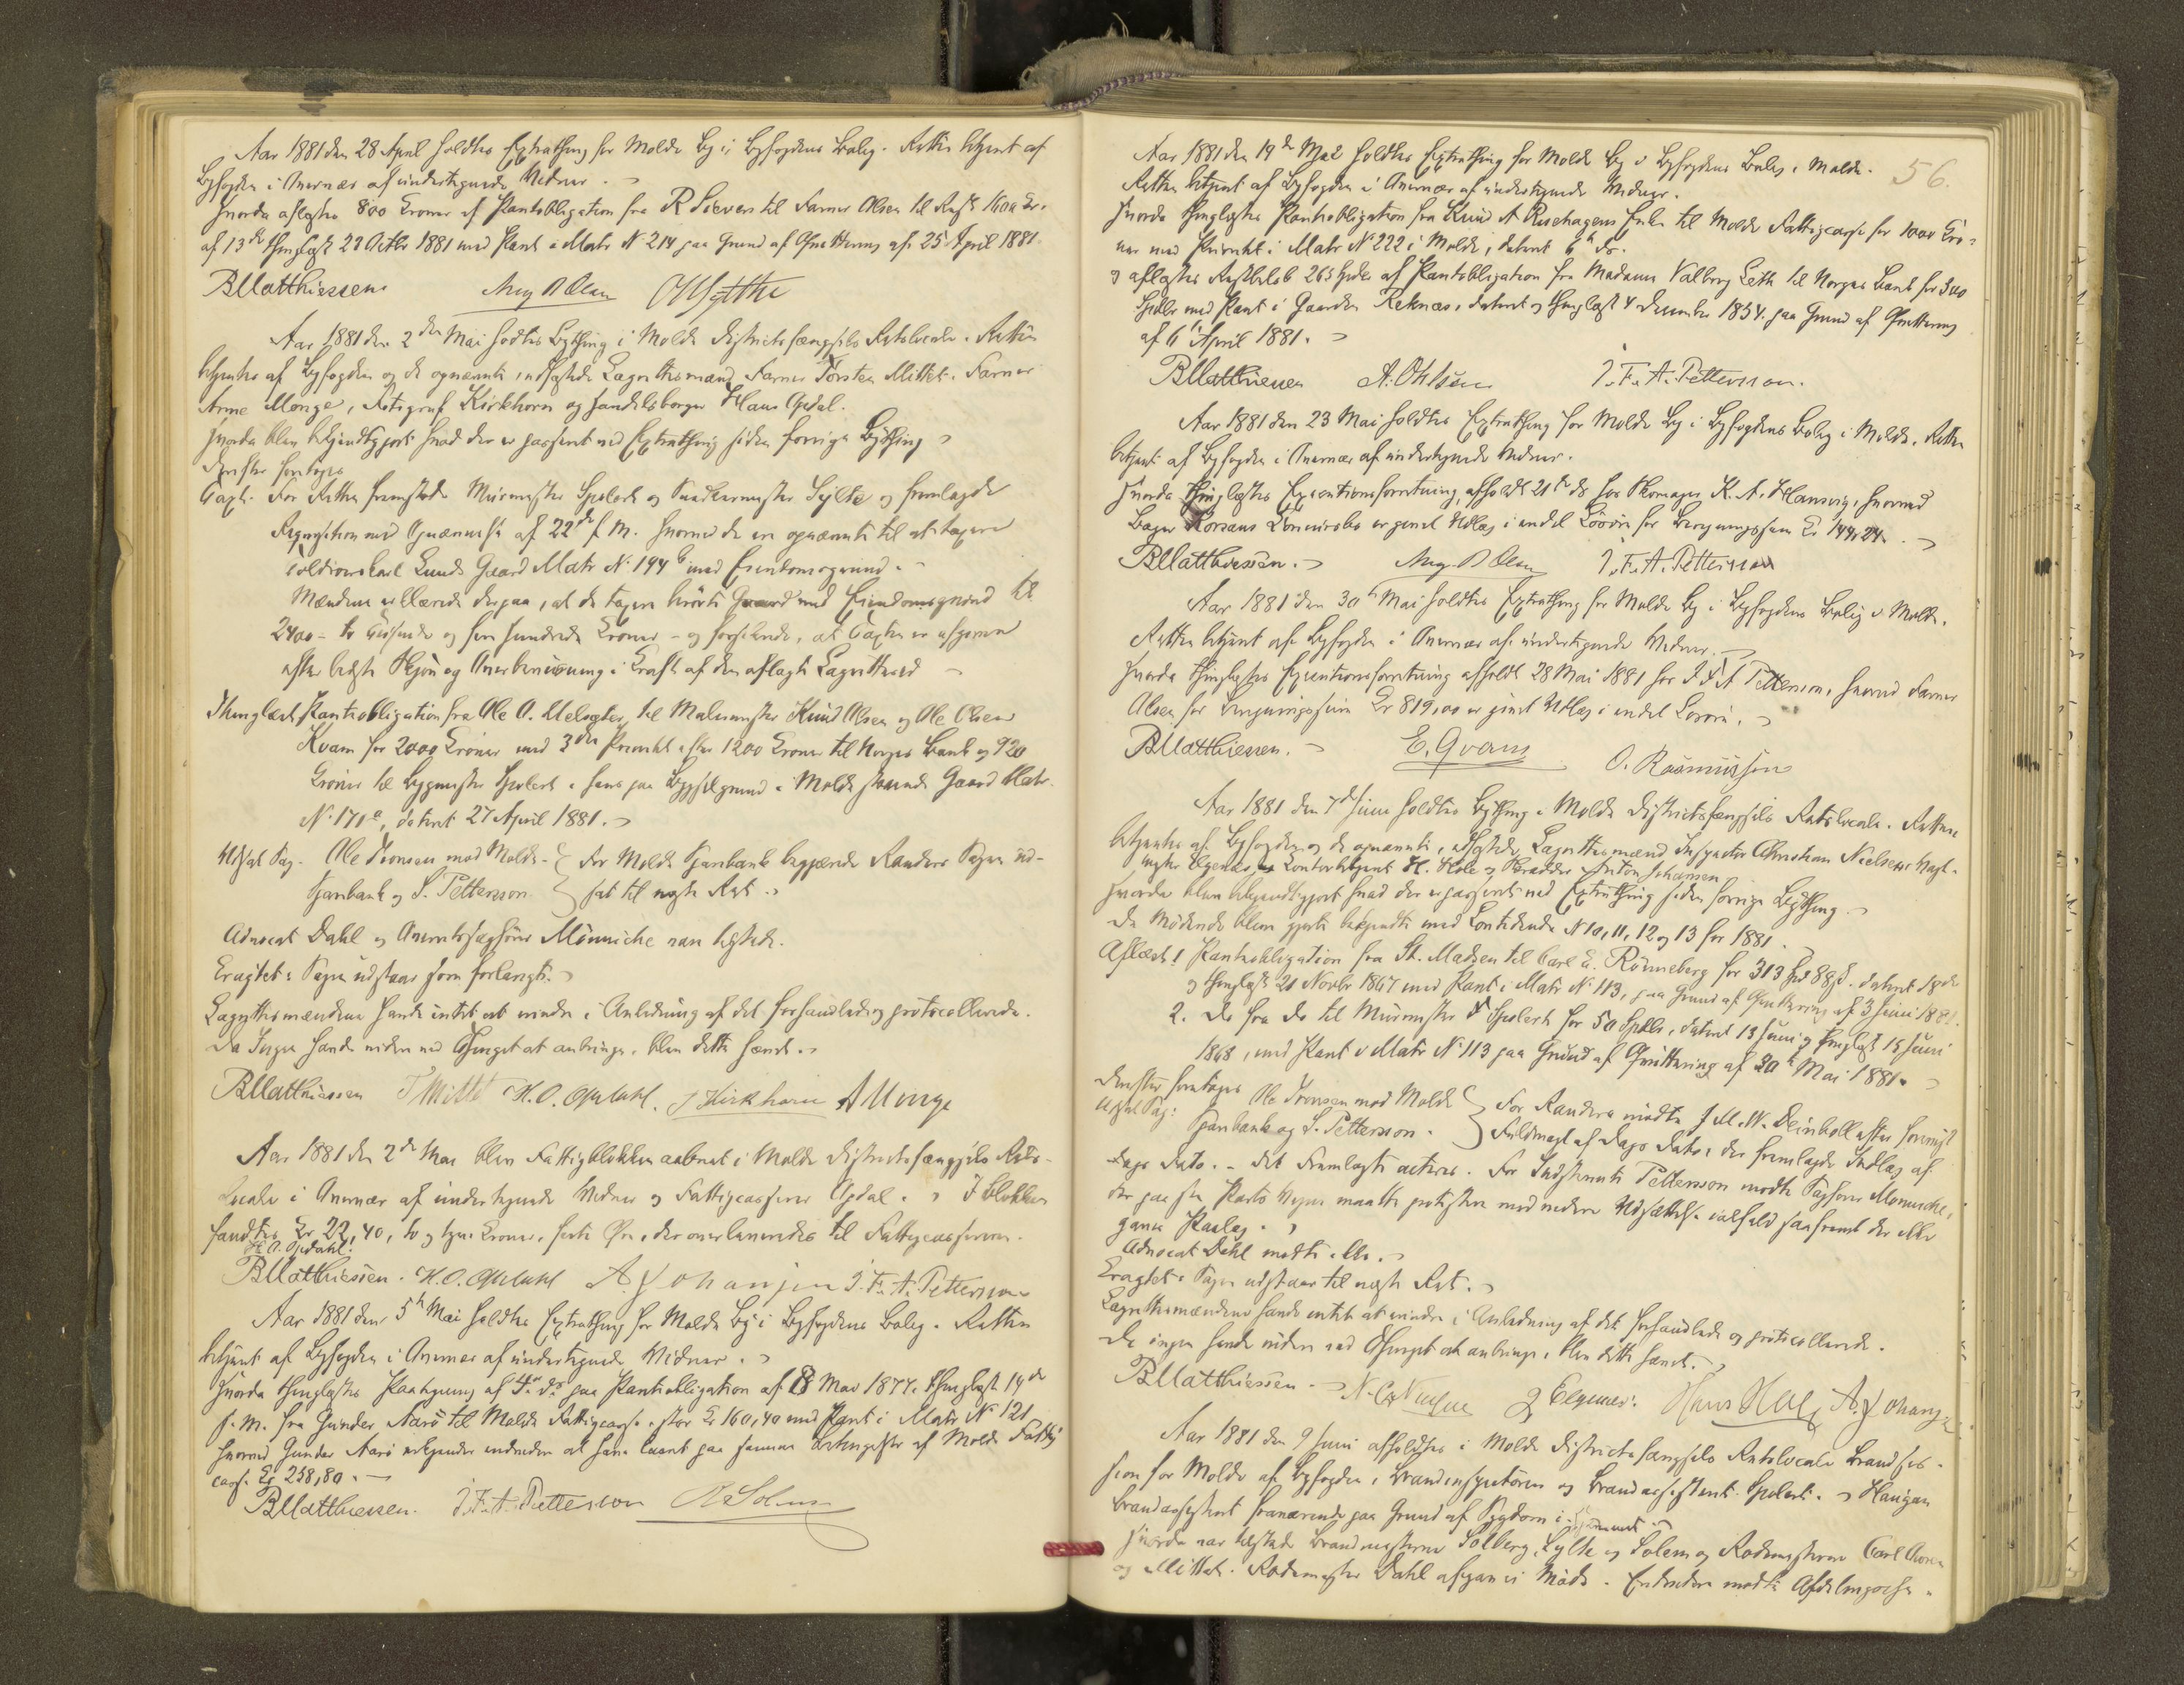 Aar 1881 den 28 April holdtes Extrathing for Molde By i Byfogdens Bolig. Retten betjent af
Byfogden i Overvær af undertegnede Vidner.
Hvorda aflæstes 800 Kroner af Pantobligation fra R Sievers til Farver Olsen til Rest 1600 Kr.
af 13de thinglæst 22 Octbr 1881 med Pant i Matr N 214 paa Grund af Qvittering af 25 April 1881.
BMatthiessen Aug B Olsen
Aar 1881 den 2den Mai holdtes Bything i Molde Districtsfængsels Retslocale. Retten
betjentes af Byfogden og de opnævnte, edfæstede Lagrettesmænd Farver Torsten Mittet, Farver
Arne Monge, Fotograf Kirkhorn og Handelsborger Hans Opdal.
Hvorda blev bekjendtgjort hvad der er passeret ved Extrathing siden forrige Bything
Derefter foretoges
Taxt. For Retten fremstode Murmester Spolert og Snedkermester Sylte og fremlagde
Reqvisition med Opnævnelse af 22de f. M. hvorved de ere opnævnte til at taxere
Lunds Gaard Matr N. 194 b med Eiendomsgrund.
Mændene erklærede derpaa, at de taxere hvert Gaard med Eiendomsgrund til
2400 - to Tusinde og fire Hundrede Kroner - og forsikrede, at Taxten er afgiven
efter bedste Skjøn og Overbeviisning i Kraft af den aflagte Lagretteed
Thinglæst Pantobligation fra Ole O. Melsæter til Malermester Knud Olsen og Ole Olsen
Kvam for 2000 Kroner med 3die Prioritet efter 1200 Kroner til Norges Bank og 920
Kroner til Bygmester Spolert i hans paa Bygselgrund i Molde staaende Gaard Matr.
N. 171 a, dateret 27 April 1881.
Udsat Sag. Ole Ivonsen mod Molde For Molde Sparebank begjærede Randers Sagen ud-
Sparebank og S. Pettersson sat til næste Ret.
Advocat Dahl og Overretssagfører Münniche var tilstede.
Eragtet: Sagen udstaar som forlangt.
Lagrettesmændene havde intet at erindre i Anledning af det forhandlede og protocollerede.
Da Ingen havde videre ved Thinget at anbringe, blev dette hævet.
BMatthiessen T Mittet H. O. Opdahl. J Kirkhorn A Monge
Aar 1881 den 2den Mai blev Fattigblokken aabnet i Molde Districtsfængsels Rets-
locale i Overvær af undertegnede Vidner og Fattigcasserer Opdal. I Blokken
fandtes Kr 22,40, to og tyve Kroner, firti Øre, der overleveredes til Fattigcassereren.
H. O. Opdahl.
BMatthiessen. H. O. Opdahl A. Johansen J. F. A. Pettersson
Aar 1881 den 5te Mai holdtes Extrathing for Molde By i Byfogdens Bolig. Retten
betjent af Byfogden i Overvær af undertegnede Vidner.
Hvorda thinglæstes Paategning af 4de ds. paa Pantobligation af 8 Mai 1877, thinglæst 14de
s. M. fra Gunder Aarø til Molde Fattigcasse, stor Kr 160,40 med Pant i Matr N 121
hvorved Gunder Aarø erkjender endvidere at have laant paa samme Betingelser af Molde Fattig
casse Kr 258,80.
BMatthiessen. J. F. A. Pettersson
56.
Aar 1881 den 19de Mai holdtes Extrathing for Molde By i Byfogdens Bolig i Molde.
Retten betjent af Byfogden i Overvær af undertegnede Vidner.
Hvorda thinglæstes Pantobligation fra Knud A Rusehagens Enke til Molde Fattigcasse for 1000 Kro-
ner med Prioritet i Matr N 222 i Molde, dateret 6te ds.
og aflæstes Restbeløb 265 Spdlr af Pantobligation fra Madame Valborg Leth til Norges Bank for 300
Spdlr med Pant i Gaarden Reknæs, dateret og thinglæst 4 December 1854. paa Grund af Qvittering
af 6te April 1881.
BMatthiessen A. Ohlsen J. F. A. Pettersson.
Aar 1881 den 23 Mai holdtes Extrathing for Molde By i Byfogdens Bolig i Molde. Retten
betjent af Byfogden i Overvær af undertegnede Vidner.
Hvorda thinglæstes Executionsforretning, afholdt 21de ds hos Skomager K. A. Hansvig, hvorved
Bager Korsans er givet Udlæg i endel Løsøre for Kr 144,24.
BMatthiessen. Aug. B Olsen J. F. A. Pettersson
Aar 1881 den 30te Mai holdtes Extrathing for Molde By i Byfogdens Bolig i Molde.
Retten betjent af Byfogden i Overvær af undertegnede Vidner.
Hvorda thinglæstes Executionsforretning afholdt 28 Mai 1881 hos J. F. A Pettersson, hvorved Farver
Olsen for Kr 819,00 er givet Udlæg i endel Løsøre.
BMatthiessen. E. Qvam O. Rasmussen
Aar 1881 den 7de Juni holdtes Bything i Molde Districtsfængsels Retslocale. Retten
betjentes af Byfogden og de opnævnte, edfæstede Lagrettesmænd Inspector Christian Nielsen, Vægt-
mester Elgenes, Contorbetjent H. Hole og Anton Johansen
Hvorda blev bekjendtgjort hvad der er passeret ved Extrathing siden forrige Bything.
De Mødende blev gjort bekjendt med Lovtidende N 10, 11, 12 og 13 for 1881.
Aflæst 1 Pantobligation fra St. Madsen til Carl E. Rønneberg for 313 Spd 88 ß. dateret 18de
og thinglæst 21 Novbr 1867 med Pant i Matr N 113, paa Grund af Qvittering af 3 Juni 1881.
2. Do fra do til Murmester Spolert for 50 Spdlr, dateret 13 Juni og thinglæst 15 Juni
1868, med Pant i Matr N. 113 paa Grund af Qvittering af 30te Mai 1881.
Derefter foretoges
Udsat Sag: Ole Ivonsen mod Molde For Randers mødte J. M. W. Deinboll efter
Sparebank og S. Pettersson. Fuldmagt af Dags Dato, der fremlagde Indlæg af
Dags Dato. - Det Fremlagte acteres. For Indstevnte Pettersson mødte Sagfører Münniche,
der paa sin Parts Vegne maatte protestere mod videre Udsættelse ialfald saafremt der ikke
gaves Paalæg.
Advocat Dahl mødte ikke.
Eragtet: Sagen udstaar til næste Ret.
Lagrettesmændene havde intet at erindre i Anledning af det forhandlede og protocollerede.
Da ingen havde videre ved Thinget at anbringe, blev dette hævet.
BMatthiessen. N. Chr Nielsen Elgenes. Hans Hole A. Johansen
Aar 1881 den 9 Juni afholdtes i Molde Districtsfængsels Retslocale Brandses-
sion for Molde af Byfogden, Brandinspectøren og Brandassistent Spolert. Haugan
Brandassistent fraværende paa Grund af Sygdom i
Hvorda var tilstede Brandmesterne Solberg, Sylte og Solem og Rodemesterne Carl Owren
og Mittet. Rodemester Dahl afgaven Møde. Endvidere mødte Afdelingschef